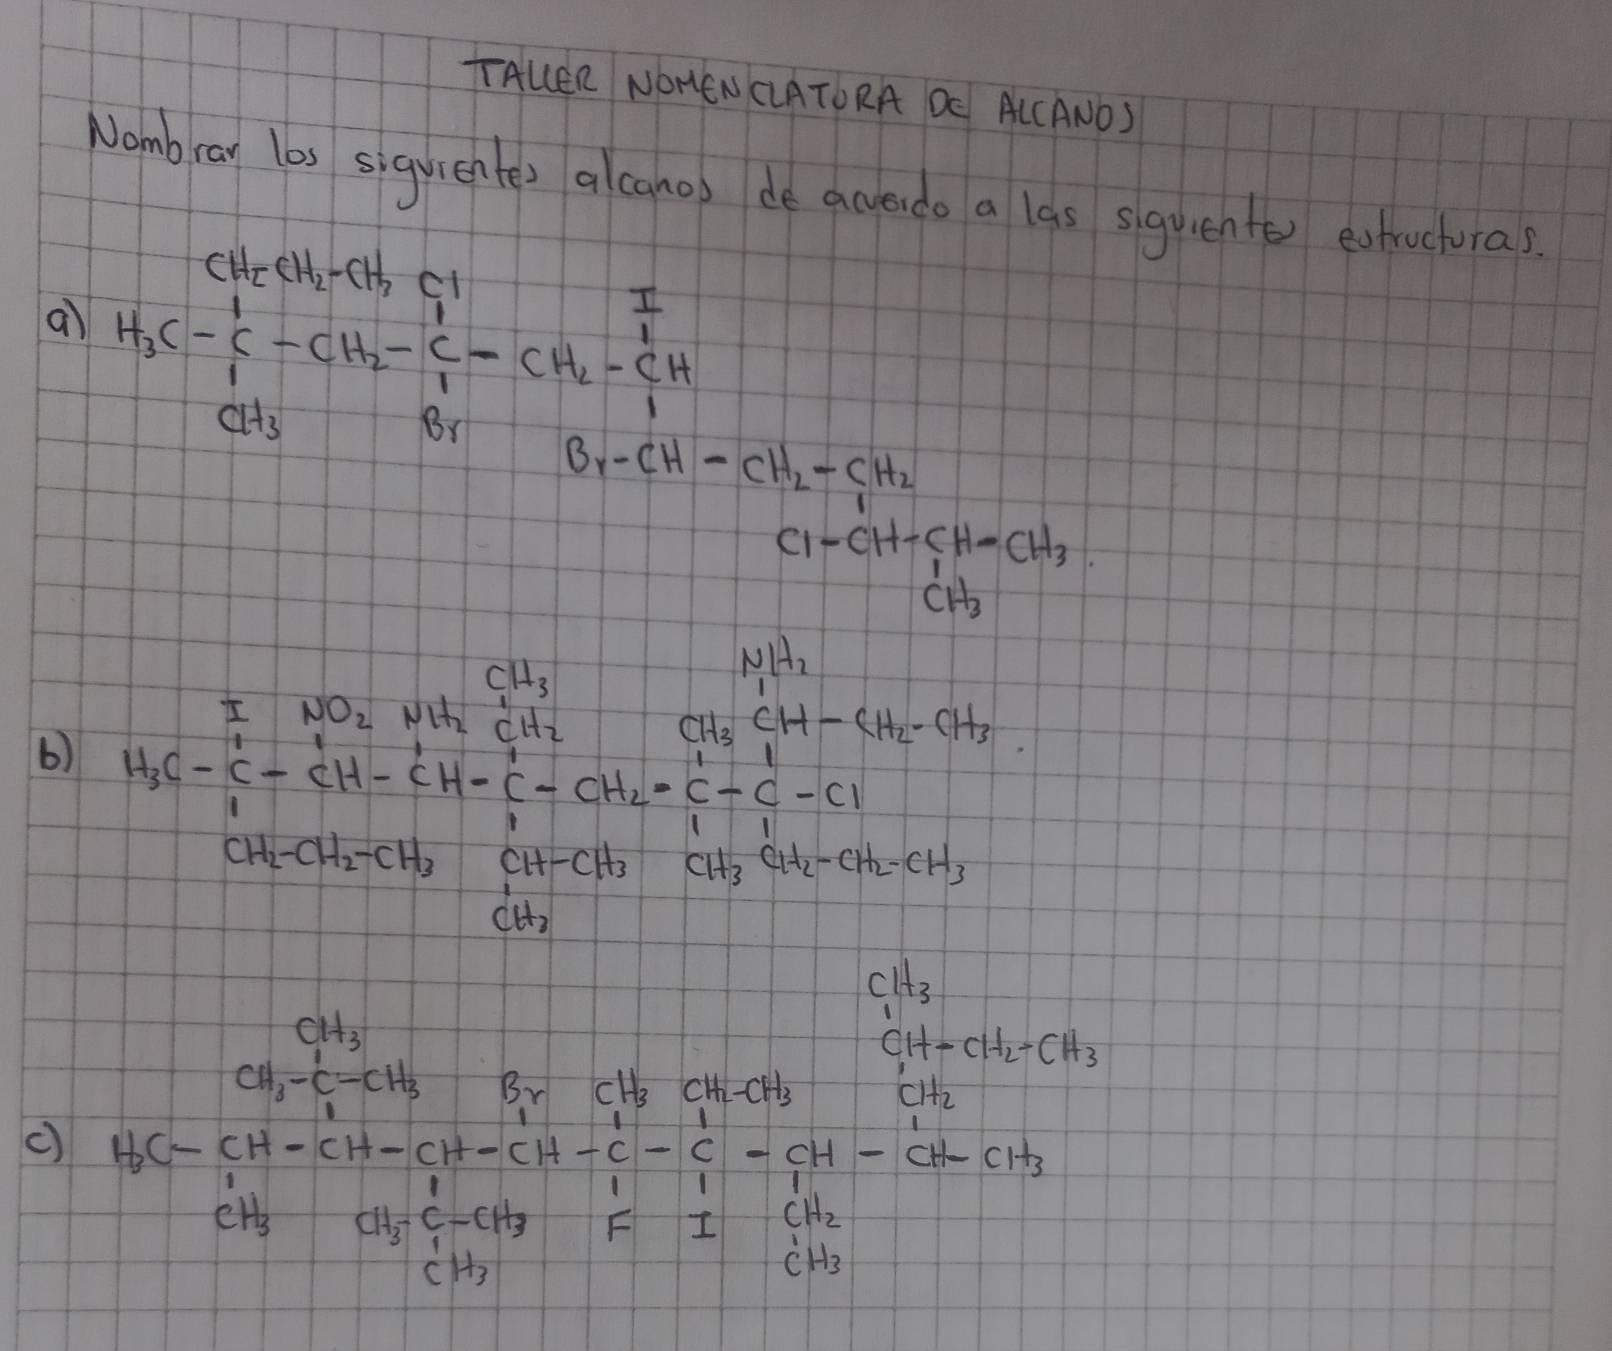 TALLER NOMENCLATURA DE ALCANOS
Nombrar los siguientes alcanos de acuerdo a las siguientes estructuras.
CH2-CH2-CH3 Cl I
a) H3C-C-CH2-C-CH2-CH
CH3 Br
Br-CH-CH2-CH2
Cl-CH-CH-CH3.
CH3
CH3 NH2
I NO2 NH2 CH2 CH3 CH-CH2-CH3.
b) H3C-C-CH-CH-C-CH2-C-C-Cl
CH2-CH2-CH3 CH-CH3 CH3 CH2-CH2-CH3
CH3
CH3
CH3 CH-CH2-CH3
CH3-C-CH3 Br CH3 CH2-CH3 CH2
c) H3C-CH-CH-CH-CH-C-C-CH-CH-CH3
CH3 CH3-C-CH3 F I CH2
CH3 CH3